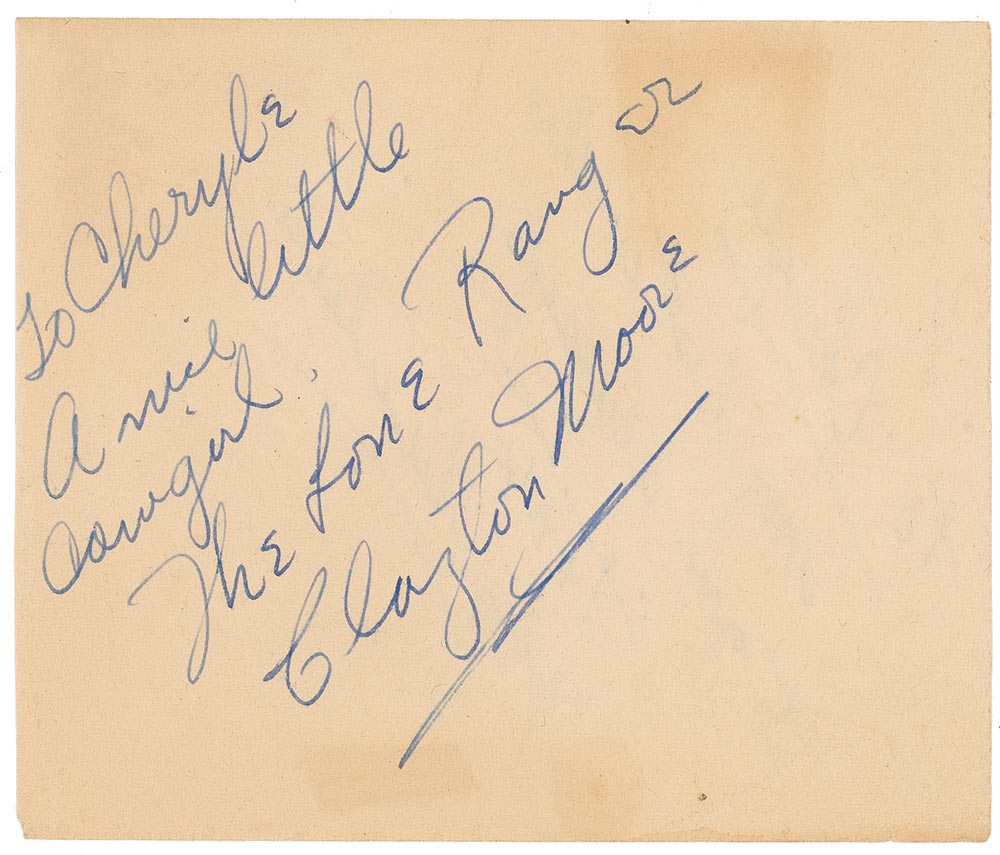 To Cheryle
A nice little
cowgirl.
The Lone Ranger
Clayton Moore